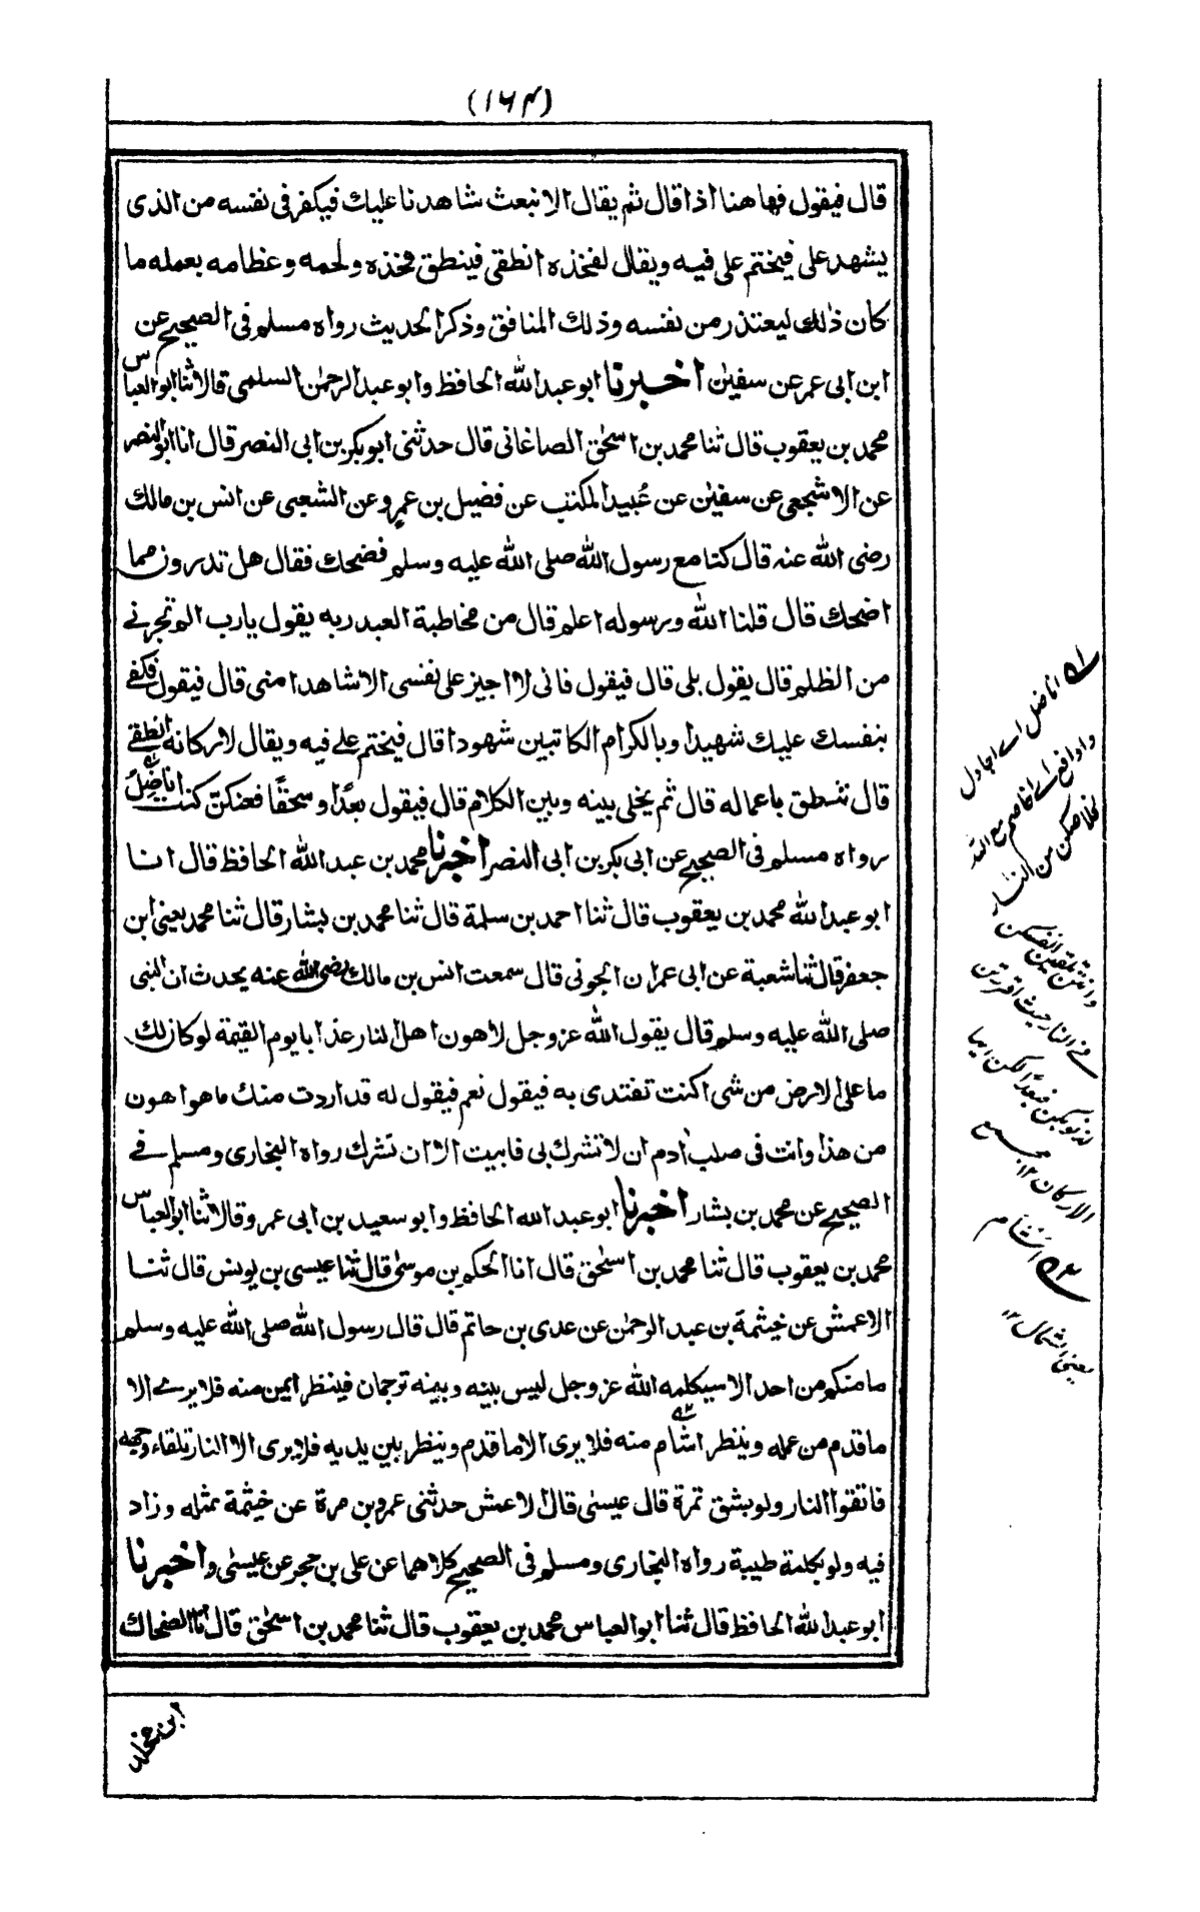 (۱۶۴)
قال فيقول فها هنا اذا قال ثم يقال الا نبعث شاهدنا عليك فيكفر فى نفسه من الذى
يشهد على فيختم على فيه ويقال لفخذه انطقى فينطق فخذه ولحمه وعظامه بعمله ما
كان ذلك ليعتذر من نفسه وذلك المنافق وذكر الحديث رواه مسلم فى الصحيح عن
ابن ابى عمر عن سفيٰن اخبرنا ابو عبد الله الحافظ وابو عبد الرحمٰن السلمى قالا ثنا ابو العباس
محمد بن يعقوب قال ثنا محمد بن اسحٰق الصاغانى قال حدثنى ابو بكر بن ابى النصر قال انا ابو النصر
عن الاشجعى عن سفيٰن عن عُبيد المكتب عن فضيل بن عمرٍو عن الشعبى عن انس بن مالك
رضى الله عنه قال كنا مع رسول الله صلى الله عليه وسلم فضحك فقال هل تدرون مما
اضحك قال قلنا الله ورسوله اعلم قال من مخاطبة العبد ربه يقول يا رب الم تجرنے
من الظلم قال يقول بلى قال فيقول فانى لا اجيز على نفسى الا شاهدا منى قال فيقول فكفے
بنفسك عليك شهيدا وبالكرام الكاتبين شهودا قال فيختم علے فيه ويقال لاركانه انطقے
قال تنطق باعماله قال ثم يخلى بينه وبين الكلام قال فيقول بعدًا وسحقًا فعنكن كنت اناضِلُ
رواه مسلم فى الصحيح عن ابى بكر بن ابى النصر اخبرنا محمد بن عبد الله الحافظ قال انا
ابو عبد الله محمد بن يعقوب قال ثنا احمد بن سلمة قال ثنا محمد بن بشار قال ثنا محمد يعنى ابن
جعفر قال ثنا شعبة عن ابى عمران الجونى قال سمعت انس بن مالك رضى الله عنه يحدث ان النبى
صلى الله عليه وسلم قال يقول الله عز وجل لاهون اهل النار عذابا يوم القيٰمة لو كان لك
ما على الارض من شى اكنت تفتدى به فيقول نعم فيقول له قد اردت منك ما هو اهون
من هذا وانت فى صلب اٰدم ان لا تشرك بى فابيت الا ان تشرك رواه البخارى ومسلم فے
الصحيح عن محمد بن بشار اخبرنا ابو عبد الله الحافظ وابو سعيد بن ابى عمرو قالا ثنا ابو العباس
محمد بن يعقوب قال ثنا محمد بن اسحٰق قال انا الحكم بن موسٰى قال ثنا عيسى بن يونس قال ثنا
الاعمش عن خيثمة بن عبد الرحمٰن عن عدى بن حاتم قال قال رسول الله صلى الله عليه وسلم
ما منكم من احد الا سيكلمه الله عز وجل ليس بينه وبينه ترجمان فينظر ايمن منه فلا يرے الا
ما قدم من عمله وينظر اشأم منه فلا يرى الا ما قدم وينظر بين يديه فلا يرى الا النار تلقاء وجهه
فاتقوا النار ولو بشق تمرة قال عيسٰى قال الاعمش حدثنى عمرو بن مرة عن خيثمة بمثله وزاد
فيه ولو بكلمة طيبة رواه البخارى ومسلم فى الصحيح كلاهما عن على بن حجر عن عيسٰى واخبرنا
ابو عبد الله الحافظ قال ثنا ابو العباس محمد بن يعقوب قال ثنا محمد بن اسحٰق قال ثنا الضحاك
ابن مخلد
اناضل اے اجادل
وادافع اے اخاصم مع الله
لخلاصكن من النار
وانتن تلقين انفسكن
فے النار حيث اقررتن
فبعدًا لكن ايها
الاركان ۱۲ مجمع
اشأم
يعنى الشمال ۱۲